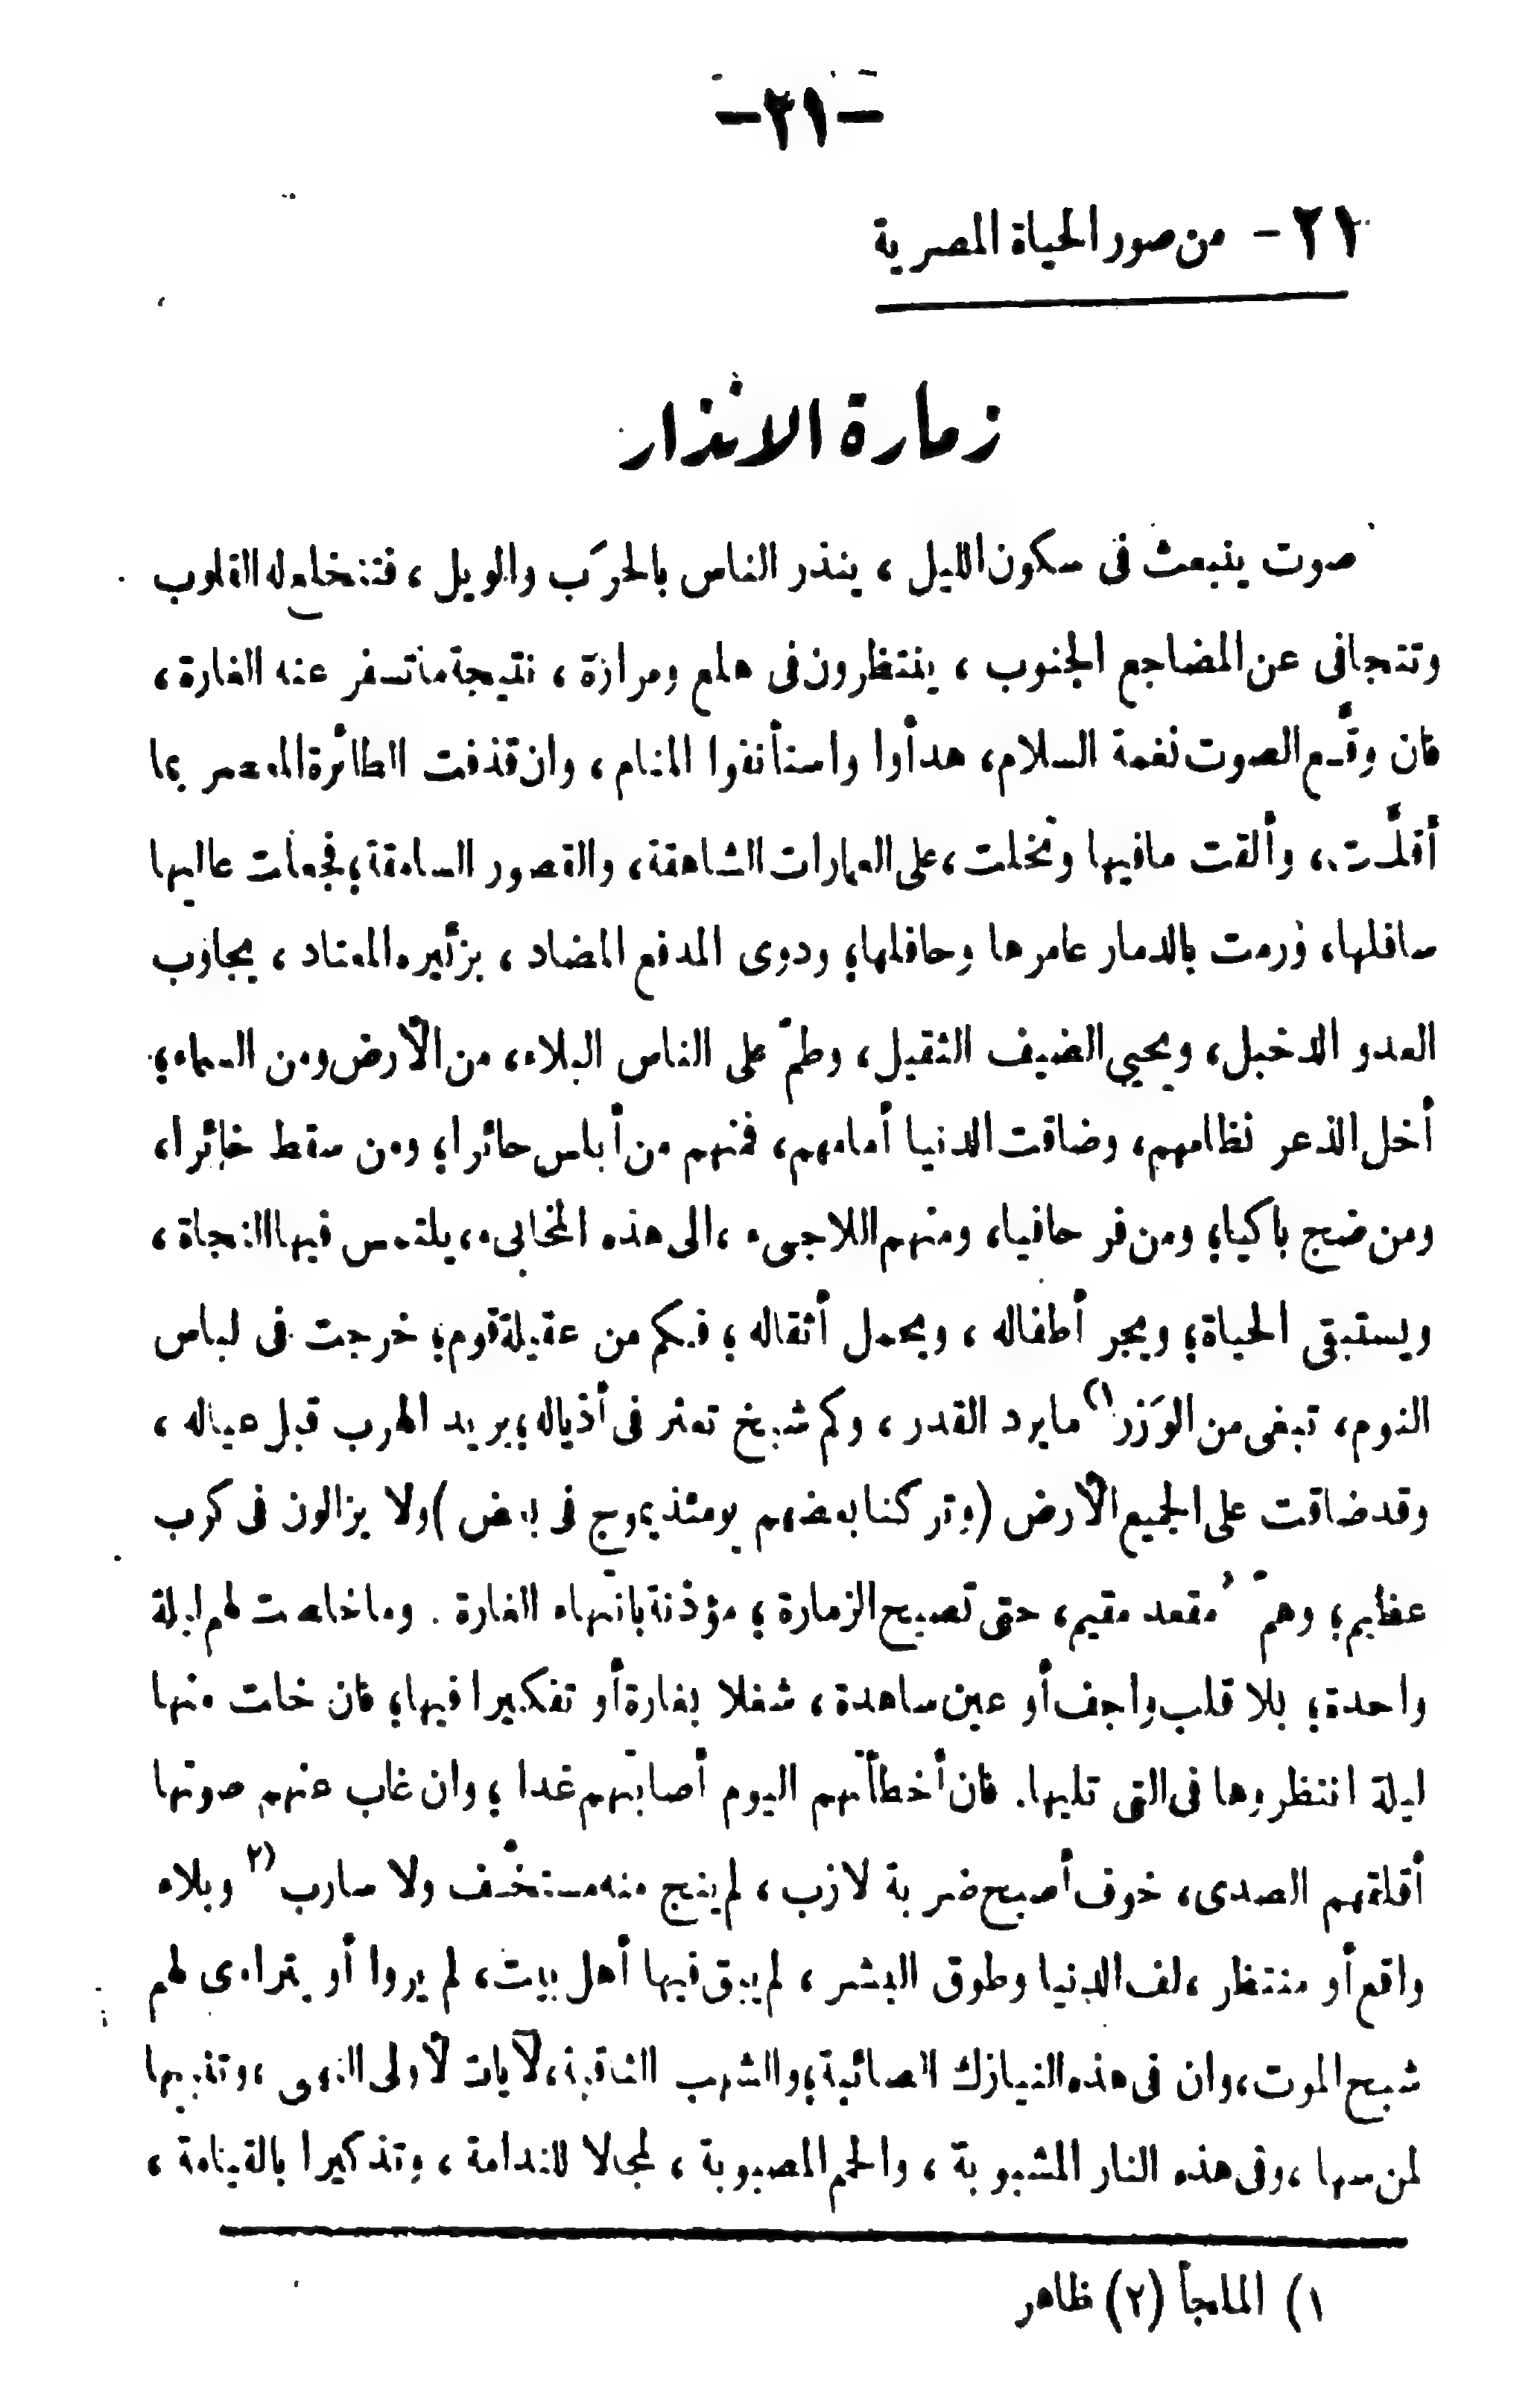 -٢١-
٢١- من صور الحياة المصرية
زمارة الانذار
صوت ينبعث فى سكون الليل ، ينذر الناس بالحرَب والويل ، فتنخلع له القلوب
وتتجافى عن المضاجع الجنوب ، ينتظرون فى هلع ومرارة ، نتيجة ما تسفر عنه الغارة ،
فان وقَّع الصوت نغمة السلام، هدأوا واستأنفوا المنام ، وان قذفت الطائرة المعصر بما
أقلَّت ، وألقت ما فيها وتخلت ، على العمارات الشاهقة ، والقصور السامقة ؛ فجعلت عاليها
سافلها، ورمت بالدمار عامرها وحافلها؛ ودوى المدفع المضاد ، بزئيره المعتاد ، يجاوب
العدو الدخيل، ويحيي الضيف الثقيل، وطمّ على الناس البلاء، من الأرض ومن السماء؛
أخل الذعر نظامهم، وضاقت الدنيا أمامهم، فمنهم من أبلس حائرا؛ ومن سقط خائرا،
ومن ضج باكيا؛ ومن فر حافيا، ومنهم اللاجىء ،الى هذه المخابىء، يلتمس فيها النجاة ،
ويستبقى الحياة؛ ويجر أطفاله ، ويحمل أثقاله ؛ فكم من عقيلة قوم؛ خرجت فى لباس
النوم، تبغى من الوَزر (١ ما يرد القدر ، وكم شيخ تعثر فى أذياله ؛ يريد الهرب قبل عياله ،
وقد ضاقت على الجميع الأرض (وتركنا بعضهم يومئذ يموج فى بعض ) ولا يزالون فى كرب
عظيم؛ وهمّ مُقعد مقيم، حتى تصيح الزمارة ؛ مؤذنة بانتهاء الغارة . وما خلصت لهم ليلة
واحدة؛ بلا قلب واجف أو عين ساهدة ، شغلا بغارة أو تفكيرا فيها؛ فان خلت منها
ليلة انتظروها فى التى تليها. فان أخطأتهم اليوم أصابتهم غدا ؛ وان غاب عنهم صوتها
أقلقهم الصدى، خوف أصبح ضربة لازب ، لم ينج منه مستخف ولا سارب (٢ وبلاء
واقع أو منتظر ، لف الدنيا وطوق البشر ، لم يبق فيها أهل بيت، لم يروا أو يتراءى لهم
شبح الموت، وان فى هذه النيازك الصائبة؛ والشهب الثاقبة، لآيات لأولى النهى ،وتنبيها
لمن سها ،وفى هذه النار المشبوبة ، والحمم المصبوبة ، لمجالا للندامة ، وتذكيرا بالقيامة ،
١) الملجأ (٢) ظاهر